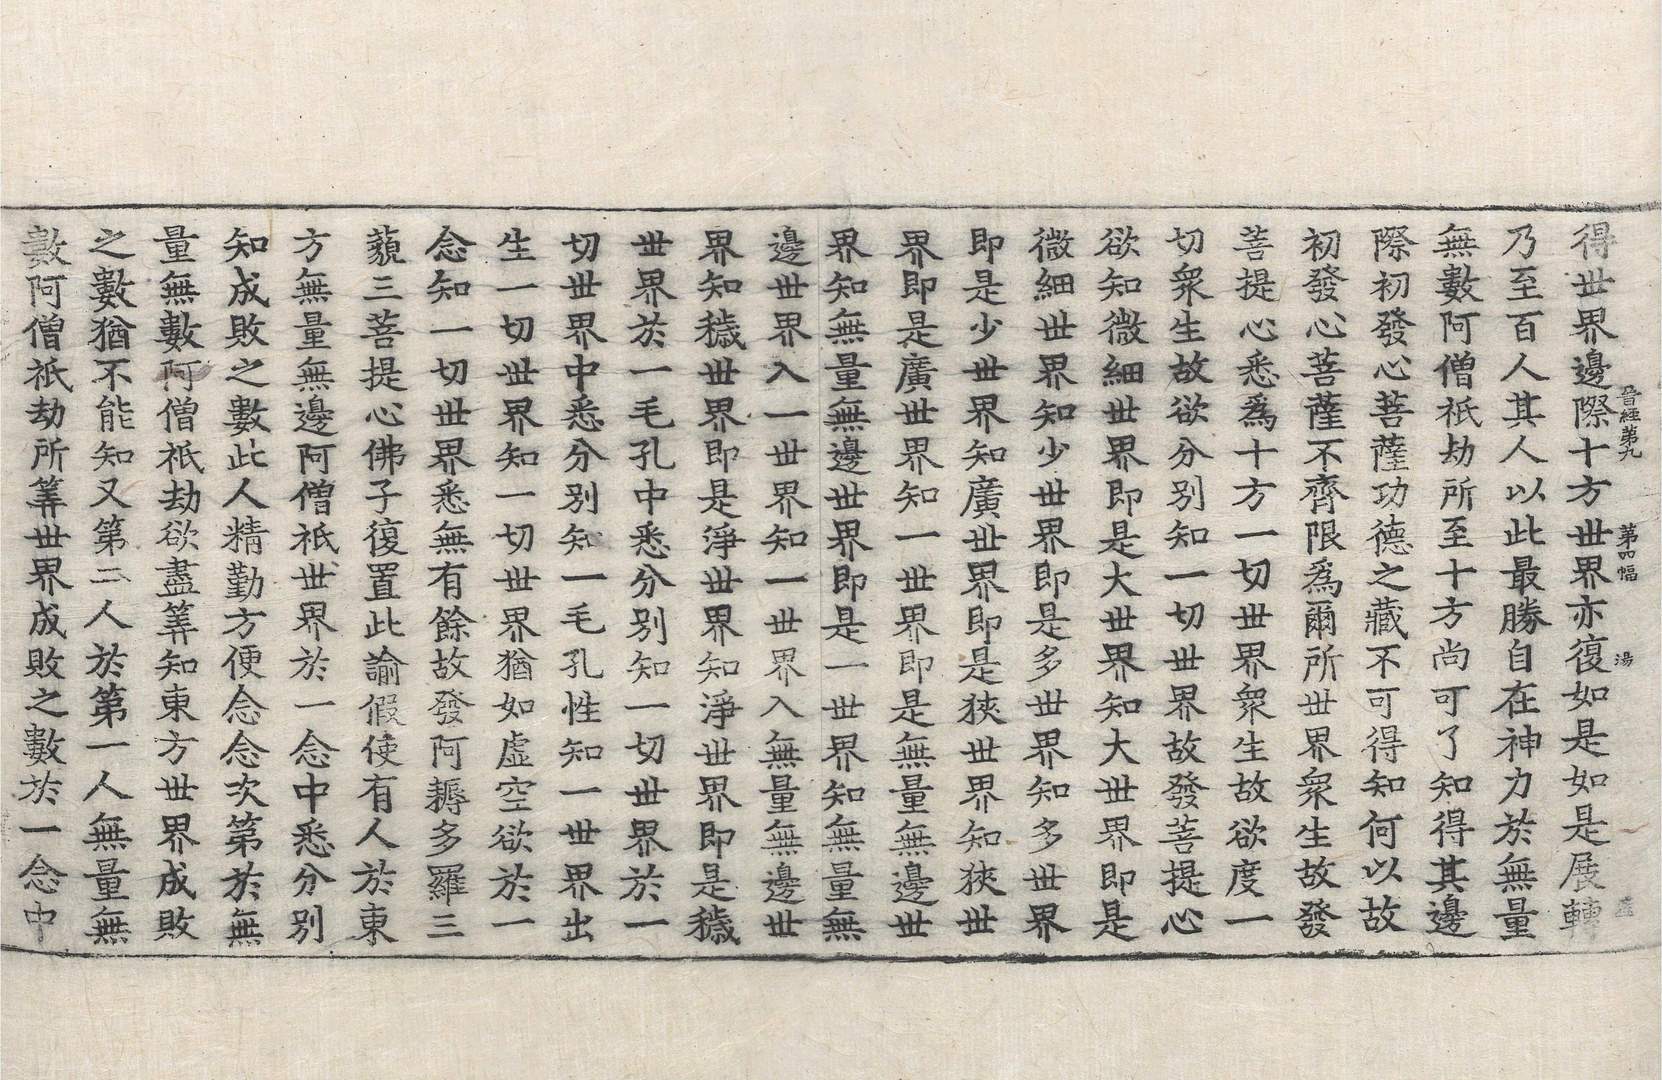 晉經第九 第四幅 湯
得世界邊際十方世界亦復如是如是展轉
乃至百人其人以此最勝自在神力於無量
無數阿僧祇劫所至十方尚可了知得其邊
際初發心菩薩功德之藏不可得知何以故
初發心菩薩不齊限爲爾所世界衆生故發
菩提心悉爲十方一切世界衆生故欲度一
切衆生故欲分別知一切世界故發菩提心
欲知微細世界即是大世界知大世界即是
微細世界知少世界即是多世界知多世界
即是少世界知廣世界即是狹世界知狹世
界即是廣世界知一世界即是無量無邊世
界知無量無邊世界即是一世界知無量無
邊世界入一世界知一世界入無量無邊世
界知穢世界即是淨世界知淨世界即是穢
世界於一毛孔中悉分別知一切世界於一
切世界中悉分別知一毛孔性知一世界出
生一切世界知一切世界猶如虛空欲於一
念知一切世界悉無有餘故發阿耨多羅三
藐三菩提心佛子復置此諭假使有人於東
方無量無邊阿僧祇世界於一念中悉分別
知成敗之數此人精勤方便念念次第於無
量無數阿僧祇劫欲盡筭知東方世界成敗
之數猶不能知又第二人於第一人無量無
數阿僧祇劫所筭世界成敗之數於一念中